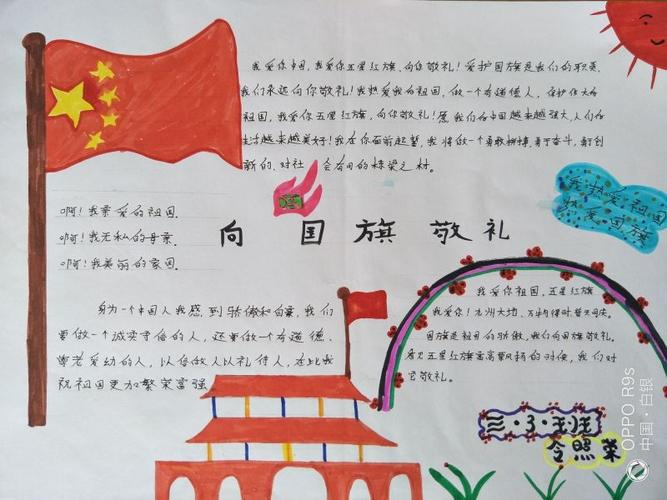 我爱你中国,我爱你五星红旗、向你敬礼!爱护国旗是我们的职责,
我们永远向你敬礼!我热爱我的祖国,做一个有道德人,保护伟大的
祖国,我爱你五星红旗,向你敬礼!愿我们的中国越来越强大,人们的
生活越来越美好!我在你面前起誓,我将做一个勇敢拼搏,勇于奋斗,勇于创
新的、对社会有用的栋梁之材。
我热爱祖国
热爱国旗
啊!我亲爱的祖国.
啊!我无私的母亲.
啊!我美丽的家园.
向国旗敬礼
身为一个中国人我感到骄傲和自豪,我们
要做一个诚实守信的人,还要做一个有道德、
尊老爱幼的人,以信做人以礼待人,在此我
祝祖国更加繁荣富强
我爱你祖国,五星红旗
我爱你!九州大地.
国旗是祖国的骄傲,我们向国旗敬礼。
看见五星红旗高高飘扬的时候,我们对
它敬礼。
三·3·班
令照荣
OPPO R9s
中国·白银